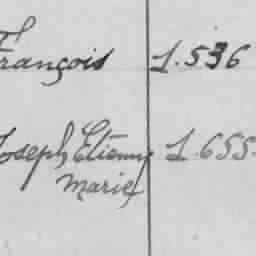 François 1.536
Joseph Etienne 1.655.
Marie